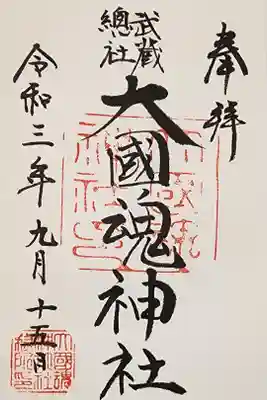 奉拝
武蔵
總社
大國魂神社
令和三年九月十五日